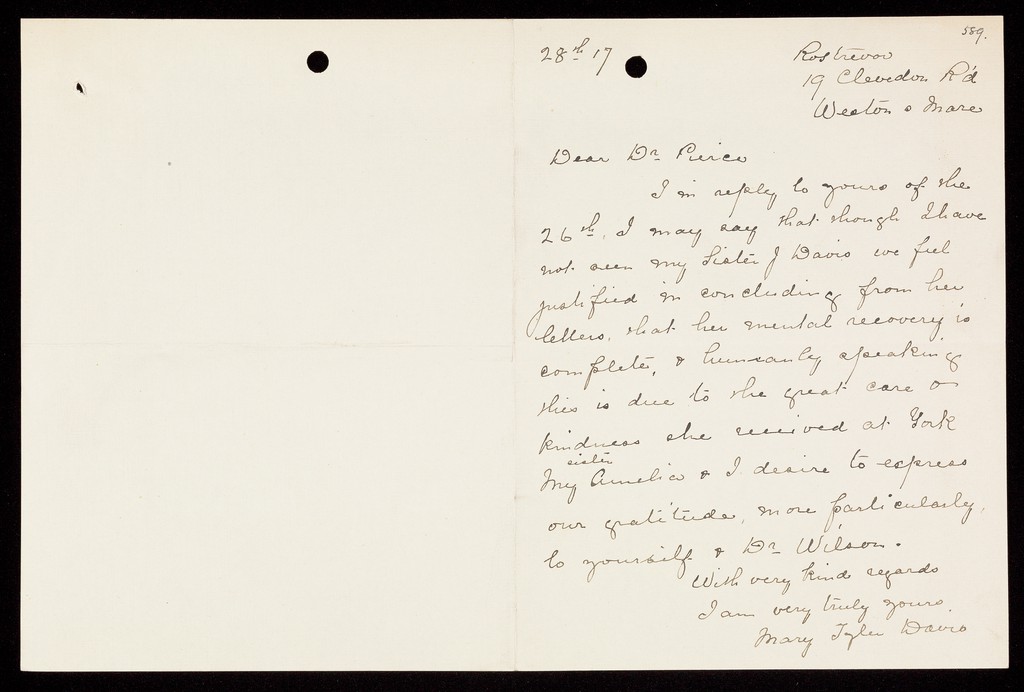 589.
28th 17
Rostrevor
19 Clevedon R'd
Weston s Mare
Dear Dr Pierce
I in reply to yours of the
26th, I may say that though I have
not seen my Sister J Davis we feel
justified in concluding from her
letters, that her mental recovery is
complete, & humanly speaking
this is due to the great care &
kindness she received at York
My sister Amelia & I desire to express
our gratitude, more particularly,
to yourself & Dr Wilson.
With very kind regards
I am very truly yours.
Mary Tyler Davis